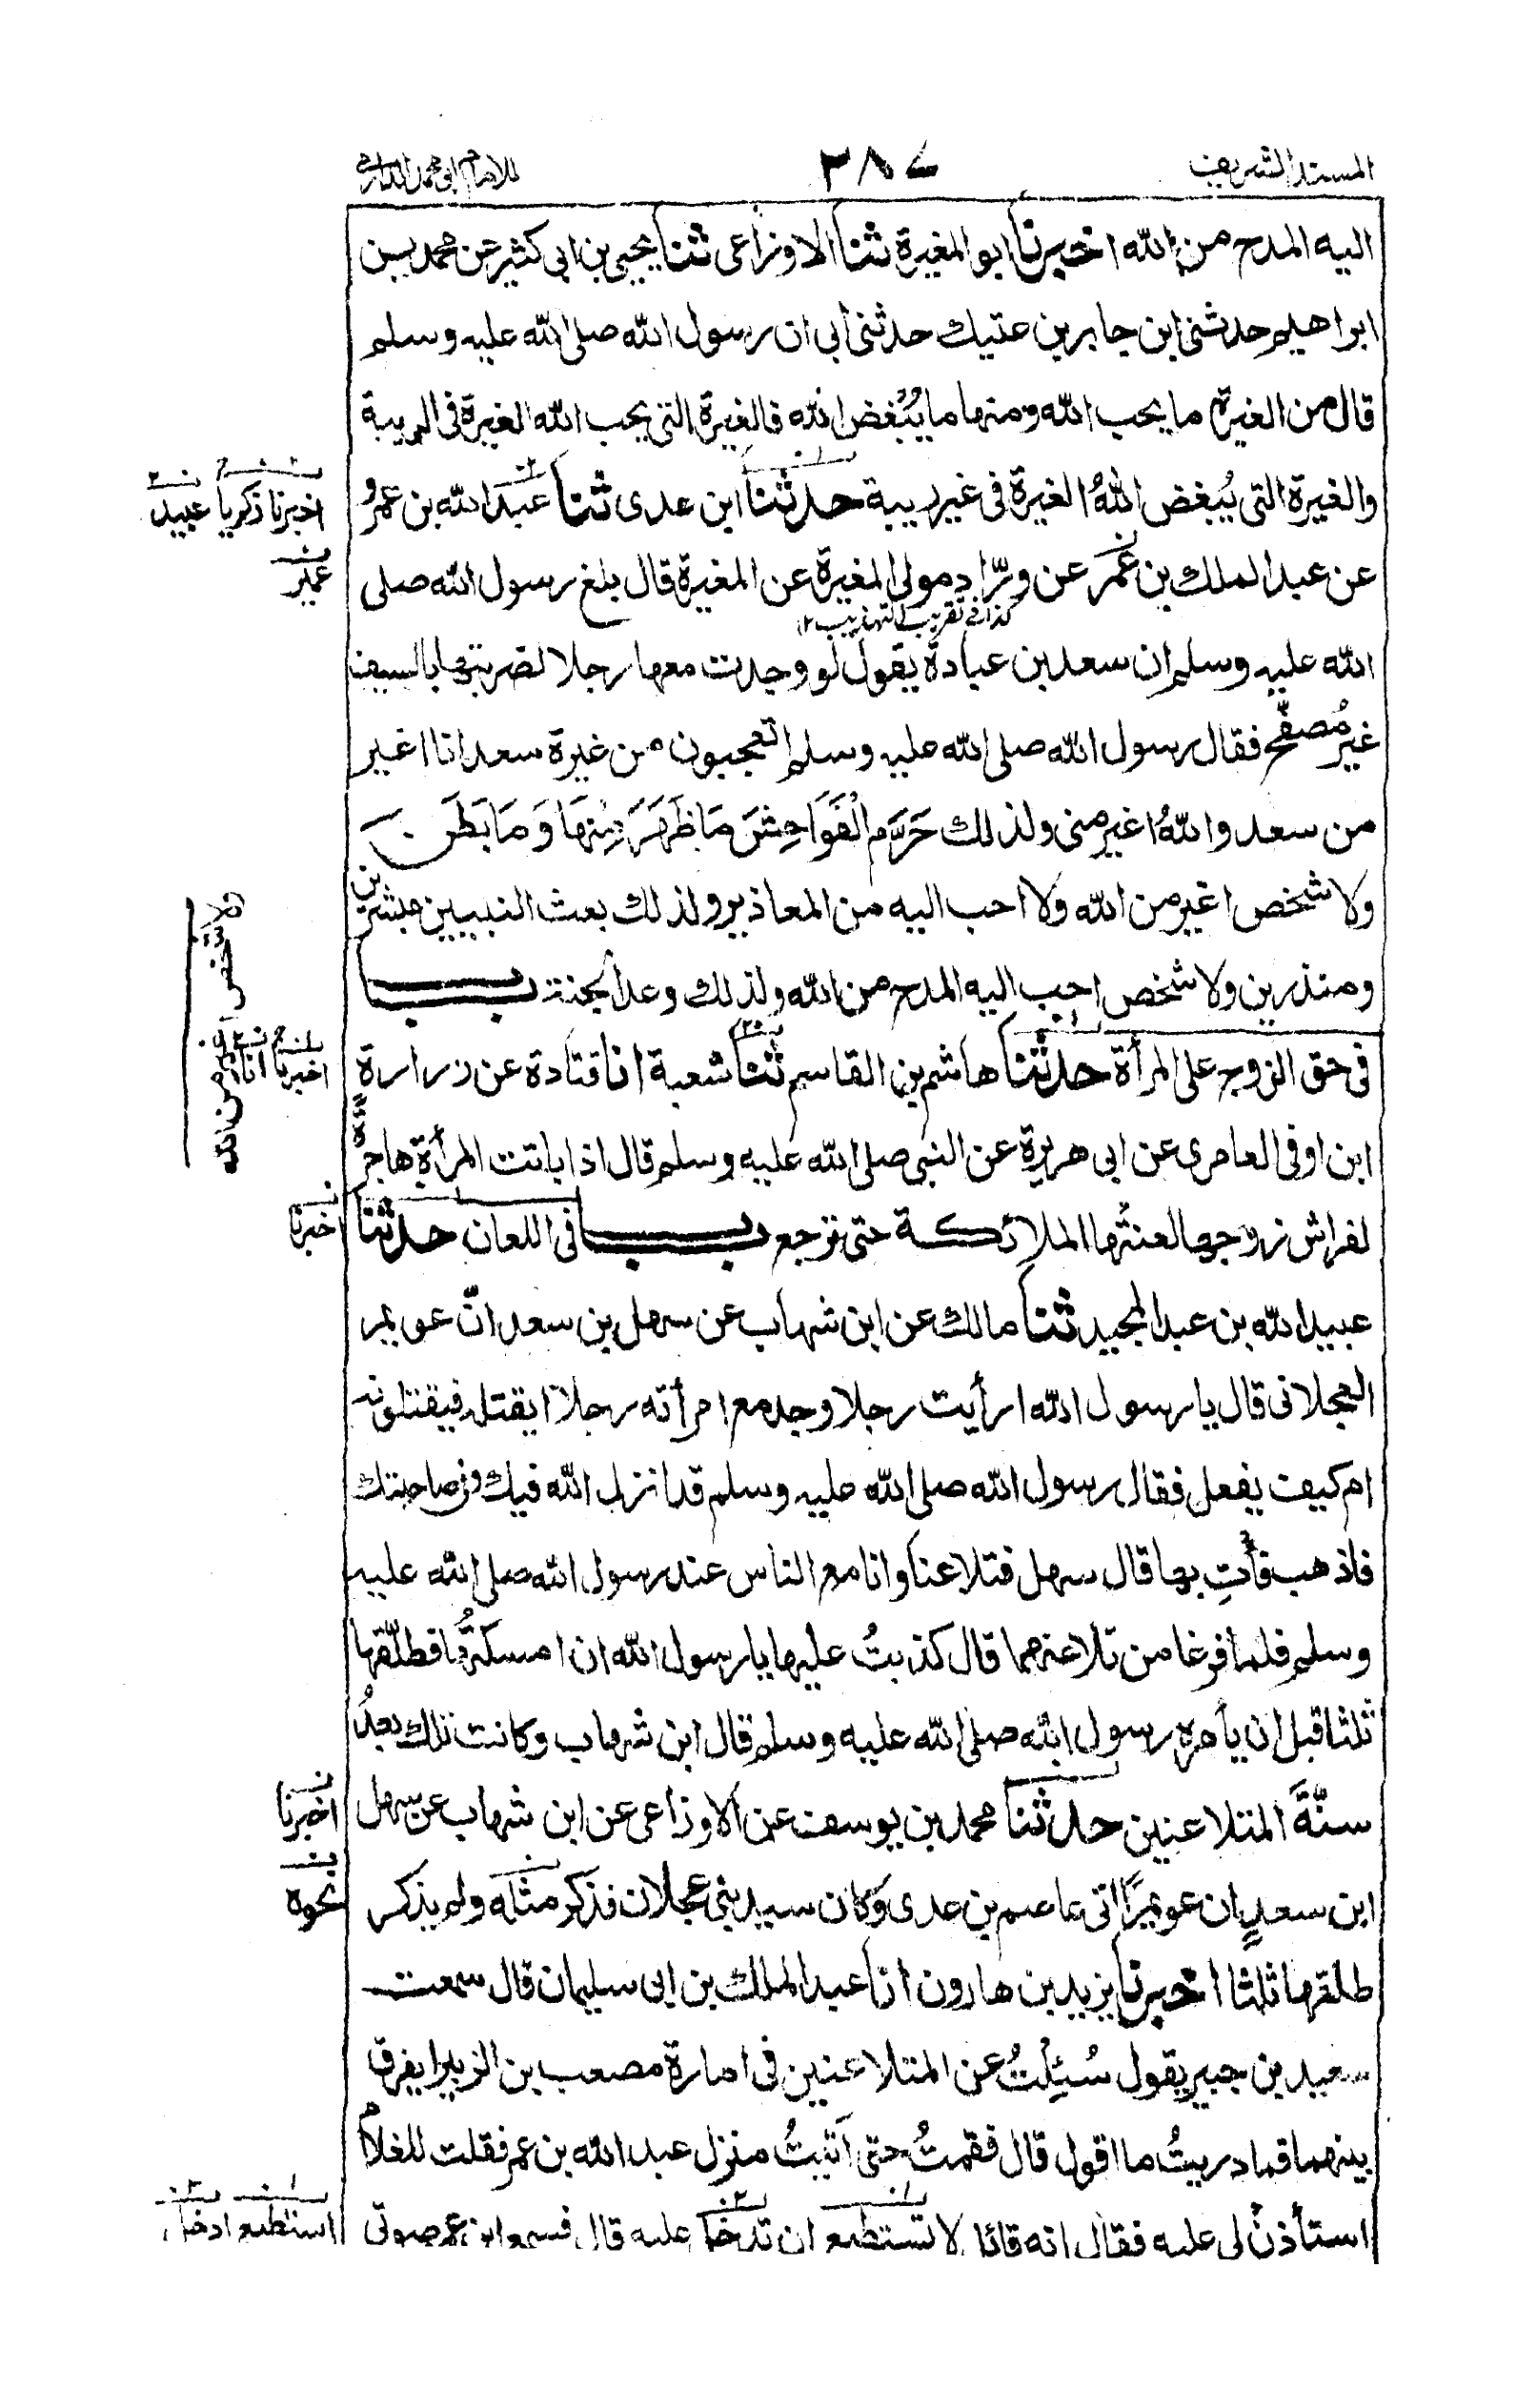 المسند الشريف
٢٨٧
للامام ابى محمد الدارمى
اليه المدح من الله اخبرنا ابو المغيرة ثنا الاوزاعى ثنا يحيى بن ابى كثير عن محمد بن
ابراهيم حدثنى ابن جابر بن عتيك حدثنى ابى ان رسول الله صلى الله عليه وسلم
قال من الغيرة ما يحب الله ومنها ما يُبْغِض الله فالغيرة التى يحب الله الغيرة فى الريبة
والغيرة التى يُبغض اللهُ الغيرة فى غير ريبة حدثنا ابن عدى ثنا عبد الله بن عمرو
اخبرنا زكريا عبيد
عن عبد الملك بن عُمَر عن ورّاد مولى المغيرة عن المغيرة قال بلغ رسول الله صلى
عمير
كذا فى تقريب التهذيب ١٢
الله عليه وسلم ان سعد بن عبادة يقول لو وجدت معها رجلا لضربتها بالسيف
غير مُصفَّح فقال رسول الله صلى الله عليه وسلم اتعجبون من غيرة سعد انا اغير
من سعد واللهُ اغير منى ولذلك حَرَّم الْفَوَاحِشَ مَا ظَهَرَ مِنْهَا وَمَا بَطَنَ
ولا شخص اغير من الله ولا احب اليه من المعاذير ولذلك بعث النبيين مبشرين
ولا شخص اغير من الله
ومنذرين ولا شخص احب اليه المدح من الله ولذلك وعد الجنة باب
فى حق الزوج على المرأة حدثنا هاشم بن القاسم ثنا شعبة انا قتادة عن زرارة
اخبرنا انا
ابن اوفى العامرى عن ابى هريرة عن النبى صلى الله عليه وسلم قال اذا باتت المرأة هاجرةً
لفراش زوجها لعنتْها الملائكة حتى ترجع باب فى اللعان حدثنا
اخبرنا
عبيد الله بن عبد المجيد ثنا مالك عن ابن شهاب عن سهل بن سعد انّ عويمر
العجلانى قال يا رسول الله ارأيت رجلا وجد مع امرأته رجلا ايقتله فيقتلونه
ام كيف يفعل فقال رسول الله صلى الله عليه وسلم قد انزل الله فيك وفى صاحبتك
فاذهب فأتِ بها قال سهل فتلاعنا وانا مع الناس عند رسول الله صلى الله عليه
وسلم فلما فرغا من تلاعنهما قال كذبتُ عليها يا رسول الله ان امسكتُها فطلّقها
ثلثا قبل ان يأمره رسول الله صلى الله عليه وسلم قال ابن شهاب وكانت تلك بعدُ
سنّةَ المتلاعنين حدثنا محمد بن يوسف عن الاوزاعى عن ابن شهاب عن سهل
اخبرنا
ابن سعدٍ ان عويمرًا اتى عاصم بن عدى وكان سيد بنى عجلان فذكر مثله ولم يذكر
نحوه
طلقها ثلثا اخبرنا يزيد بن هارون انا عبد الملك بن ابى سليمان قال سمعت
سعيد بن جبير يقول سُئِلْتُ عن المتلاعنين فى امارة مصعب بن الزبير ايفرق
بينهما فما دريتُ ما اقول قال فقمتُ حتى اَتيتُ منزل عبد الله بن عمر فقلت للغلام
استأذنْ لى عليه فقال انه قائل لا تستطيع ان تدخل عليه قال فسمع ابن عمر صوتى
استطيع ادخل